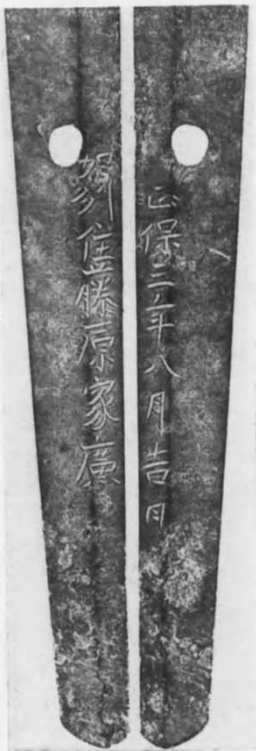 正保三年八月吉日
州住藤原家廣